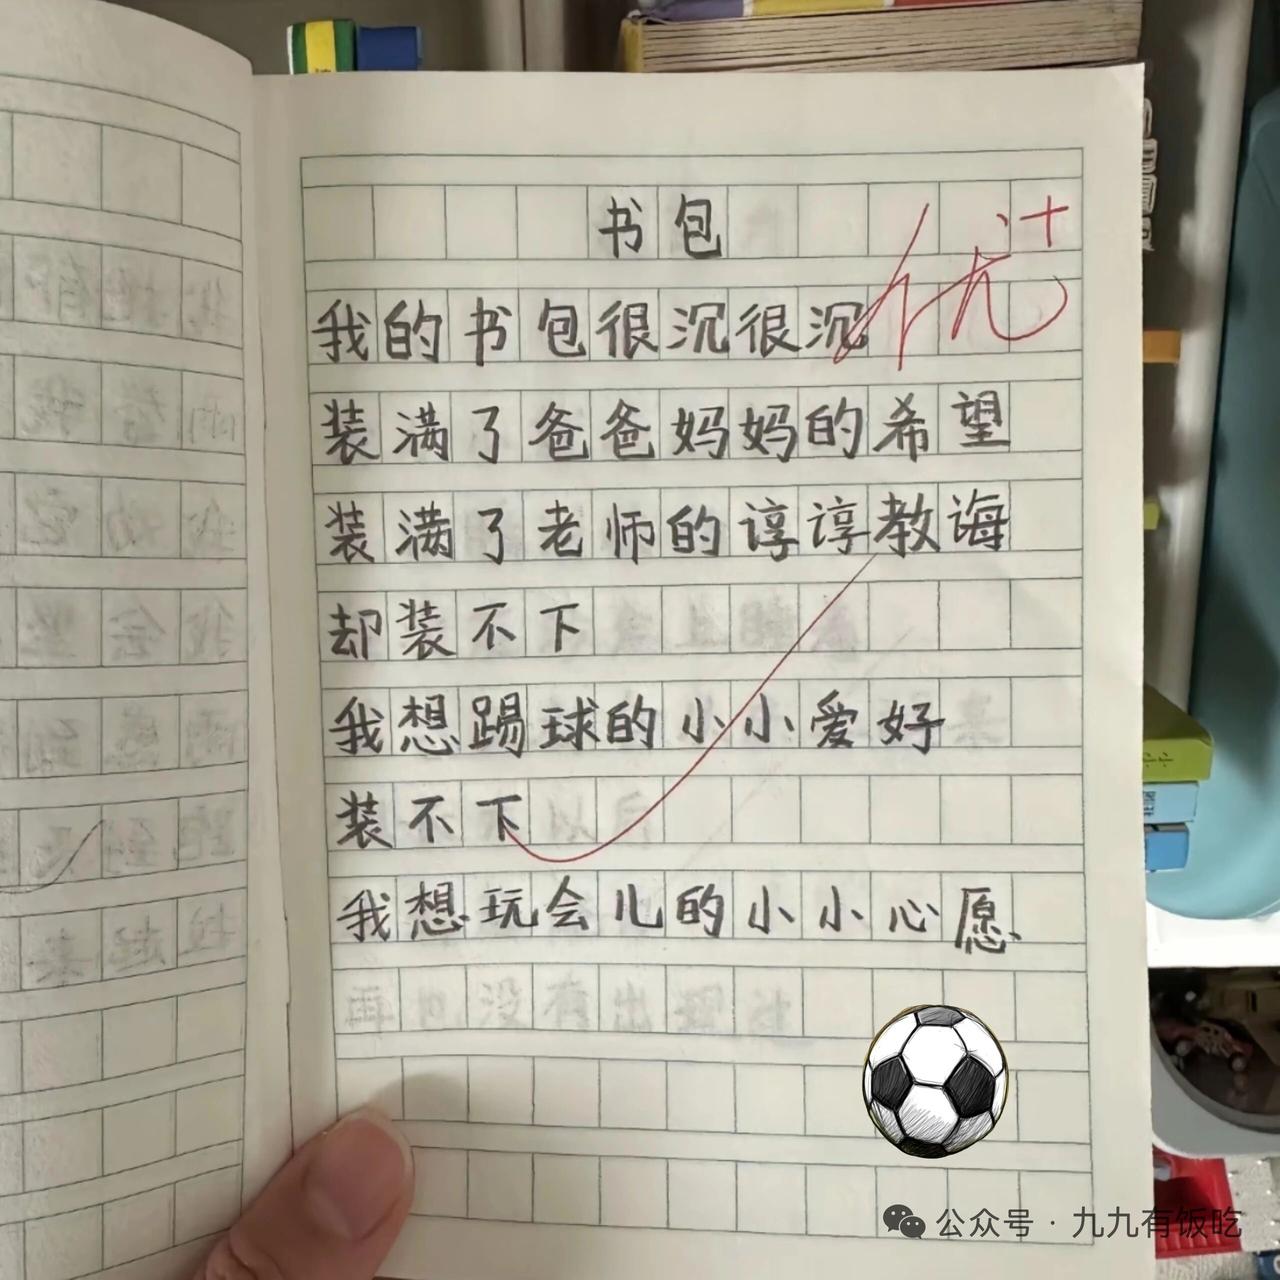 书包
优+
我的书包很沉很沉
装满了爸爸妈妈的希望
装满了老师的谆谆教诲
却装不下
我想踢球的小小爱好
装不下
我想玩会儿的小小心愿
公众号·九九有饭吃